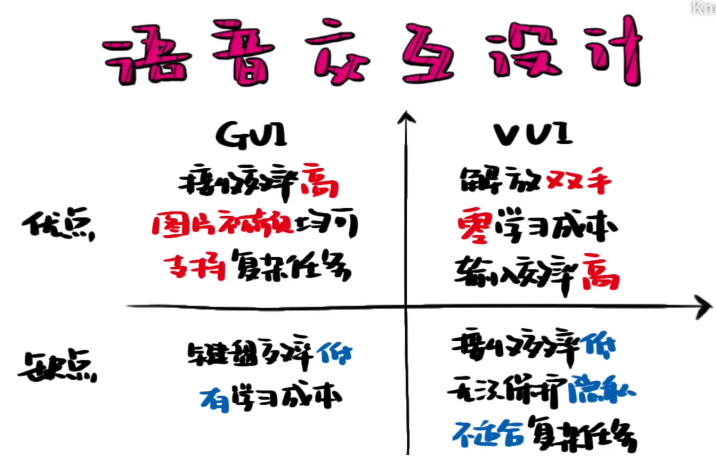 Kno
语音交互设计
GUI
VUI
优点
接收效率高
图片视频均可
支持复杂任务
解放双手
零学习成本
输入效率高
缺点
键盘效率低
有学习成本
接收效率低
无法保护隐私
不适合复杂任务